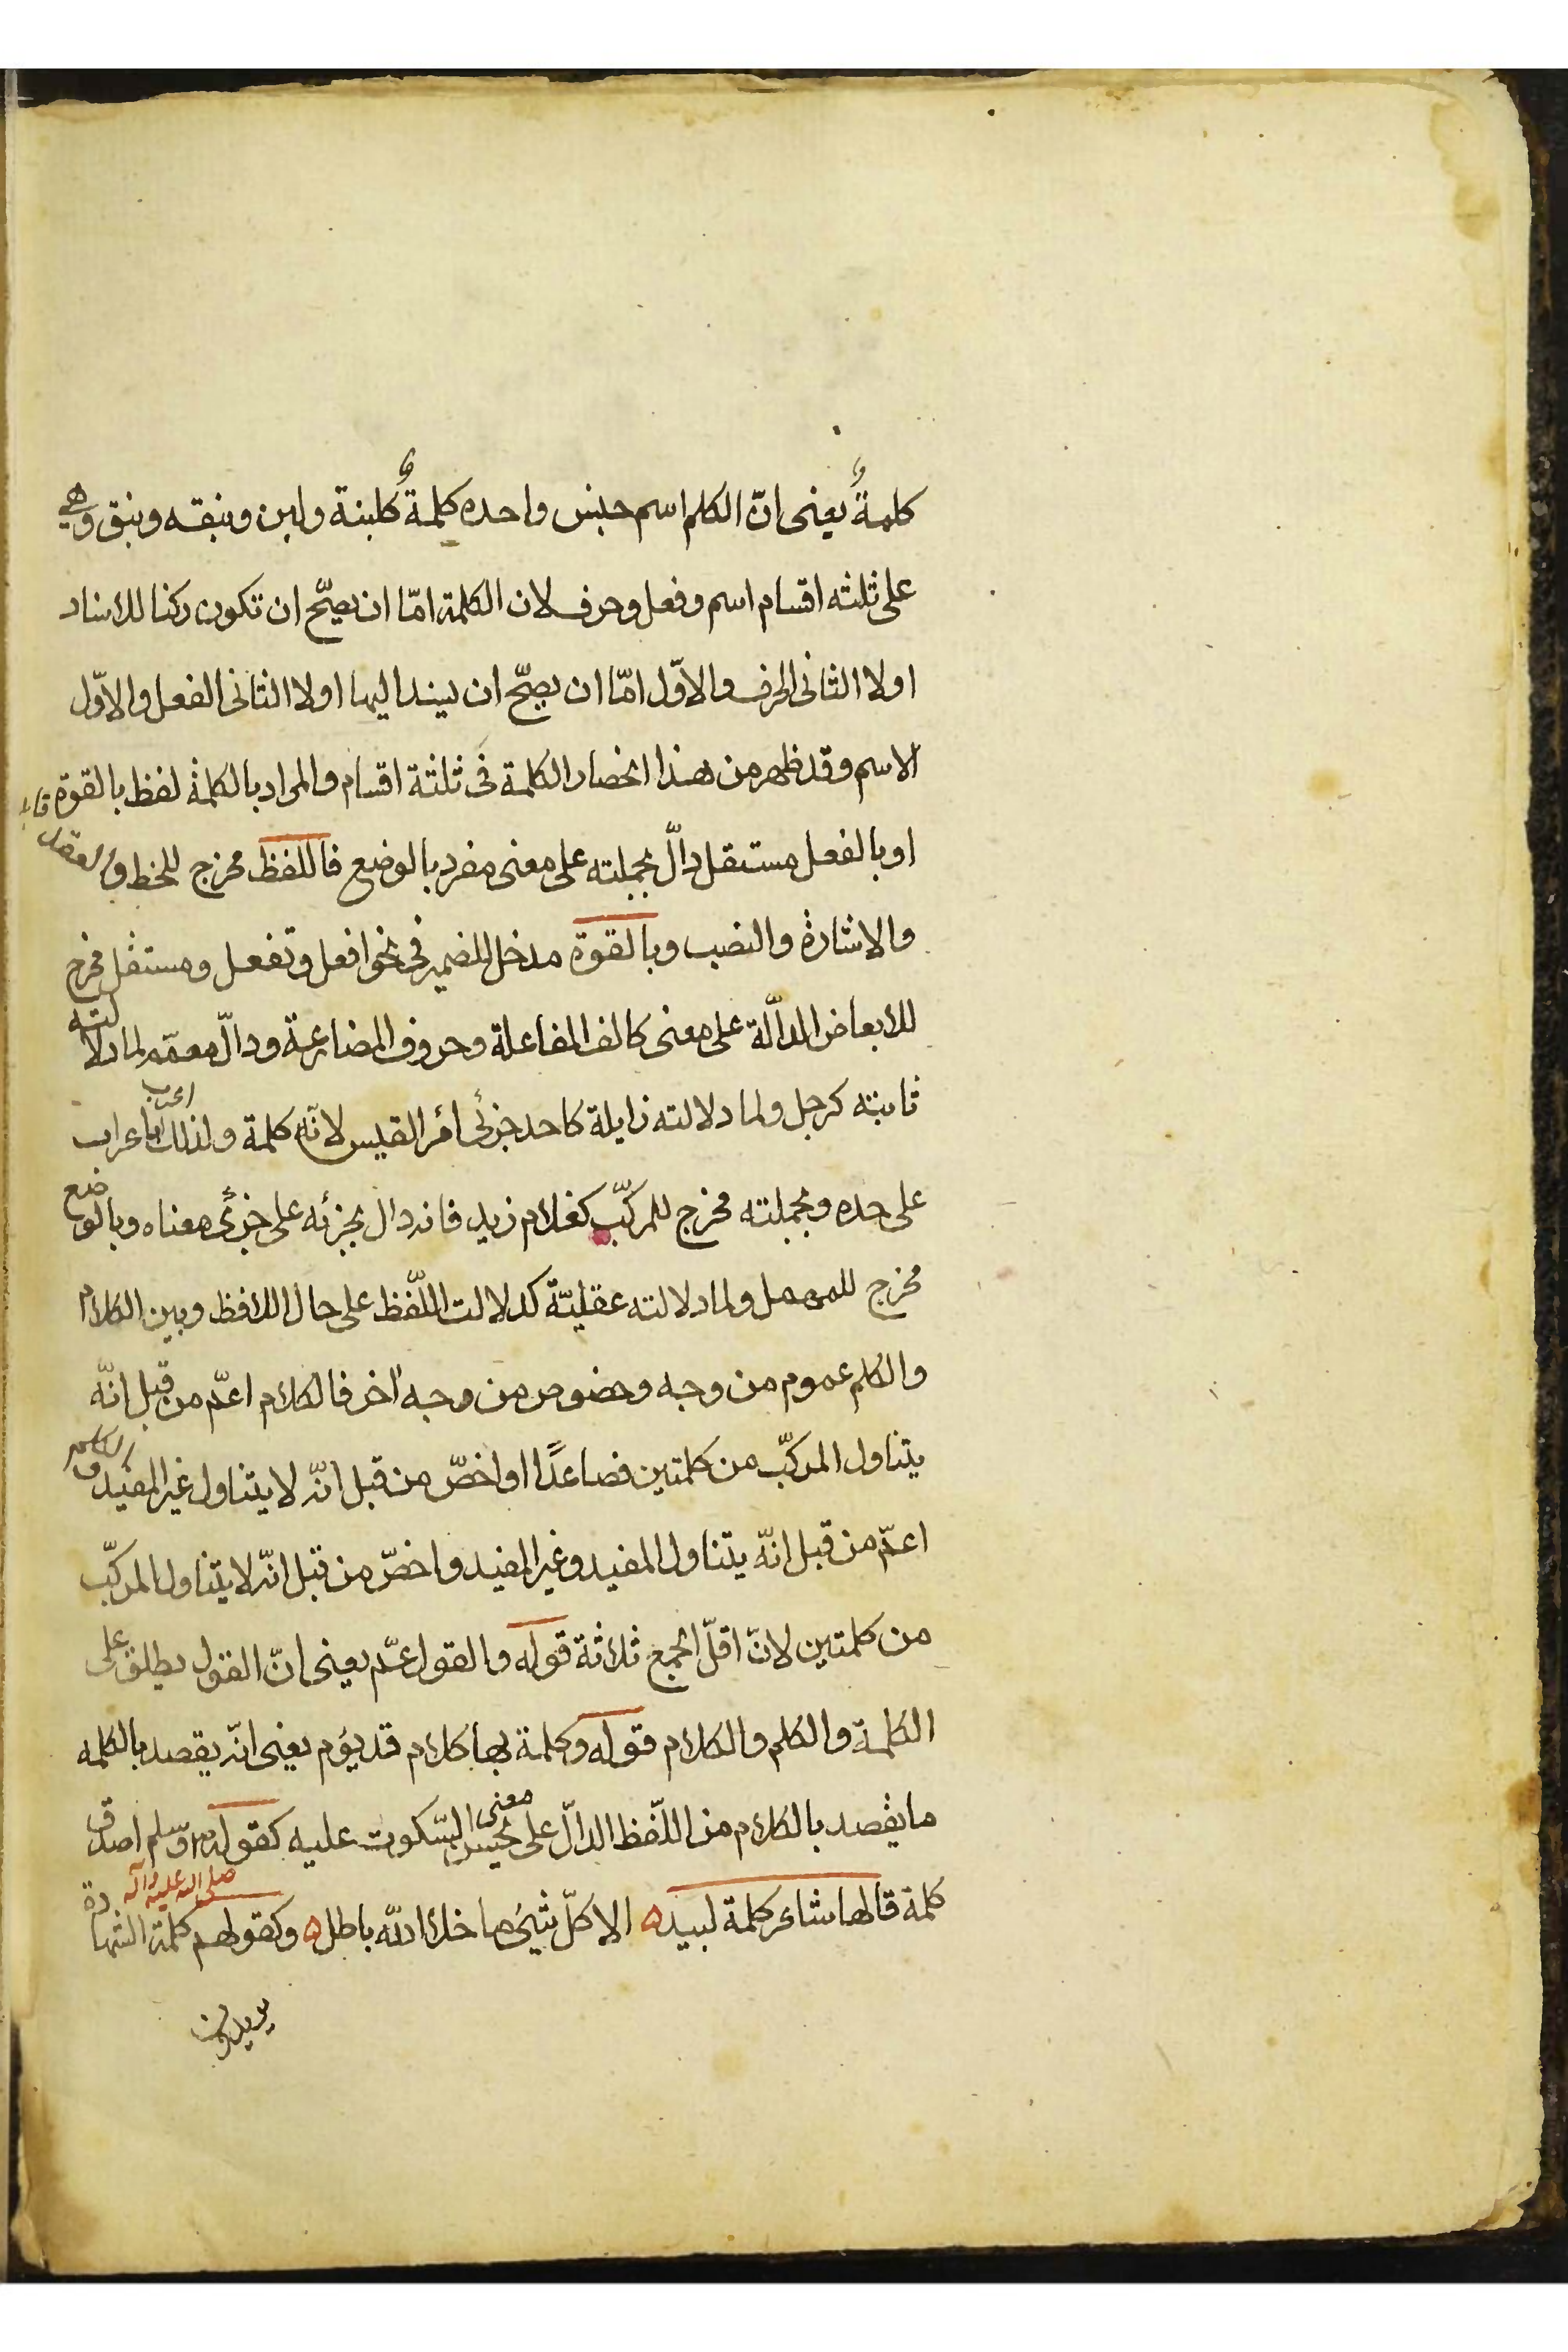 كلمةٌ يعنى انّ الكلم اسم جنس واحده كلمةٌ كلبنة ولبن ونبقه ونبق وهي
على ثلثه اقسام اسم وفعل وحرف لان الكلمة امّا ان يصحّ ان تكون ركنا للاسناد
اولا الثانى الحرف والاوّل امّا ان يصحّ ان يسند اليها اولا الثانى الفعل والاوّل
الاسم وقد ظهر من هذا انحصار الكلمة فى ثلثة اقسام والمراد بالكلمة لفظ بالقوة
او بالفعل مستقل دالّ بجملته على معنى مفرد بالوضع فاللفظ مخرج للخط والعقد
والاشارة والنصب وبالقوة مدخل للضمير فى نحو افعل وتفعل ومستقل مخرج
للابعاض الدالّة على معنى كالف المفاعلة وحروف المضارعة ودالّ معمّم لما دلالته
ثابته كرجل ولما دلالته زايلة كاحد جزئى امرء القيس لانّه كلمة ولذلك اعرب باعراب
على حده وبجملته مخرج للمركّب كغلام زيد فانه دال بجزئه على جزئى معناه وبالوضع
مخرج للمهمل ولما دلالته عقليّة كدلالت اللّفظ على حال اللافظ وبين الكلام
والكلم عموم من وجه وخصوص من وجه آخر فالكلام اعمّ من قبل انّه
يتناول المركّب من كلمتين فصاعدًا واخصّ من قبل انّه لا يتناول غير المفيد والكلم
اعمّ من قبل انّه يتناول المفيد وغير المفيد واخصّ من قبل انّه لا يتناول المركّب
من كلمتين لانّ اقلّ الجمع ثلاثة قوله والقول عمّ يعنى انّ القول يطلق على
الكلمة والكلم والكلام قوله وكلمة بها كلام قد يؤم يعنى انّه يقصد بالكلمه
ما يقصد بالكلام من اللّفظ الدالّ على معنى يحسن السّكوت عليه كقوله صلى الله عليه وآله وسلم اصدق
كلمة قالها شاعر كلمة لبيد ه الا كلّ شيئ ما خلا الله باطل ه وكقولهم كلمة الشهادة
يريدون